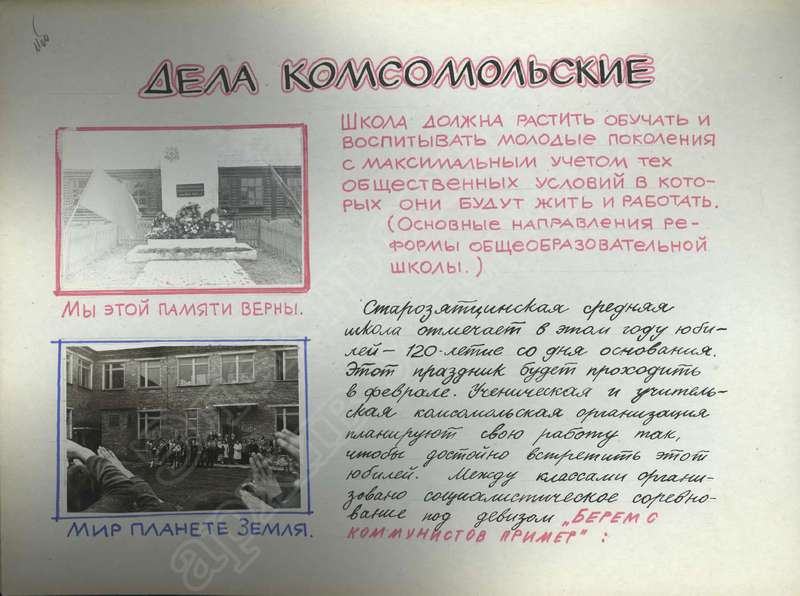 ДЕЛА КОМСОМОЛЬСКИЕ
ШКОЛА ДОЛЖНА РАСТИТЬ ОБУЧАТЬ И
ВОСПИТЫВАТЬ МОЛОДЫЕ ПОКОЛЕНИЯ
С МАКСИМАЛЬНЫМ УЧЕТОМ ТЕХ
ОБЩЕСТВЕННЫХ УСЛОВИЙ В КОТО-
РЫХ ОНИ БУДУТ ЖИТЬ И РАБОТАТЬ.
(ОСНОВНЫЕ НАПРАВЛЕНИЯ РЕ-
ФОРМЫ ОБЩЕОБРАЗОВАТЕЛЬНОЙ
ШКОЛЫ.)
МЫ ЭТОЙ ПАМЯТИ ВЕРНЫ.
Старозятцинская средняя
школа отмечает в этом году юби-
лей – 120-летие со дня основания.
Этот праздник будет проходить
в феврале. Ученическая и учитель-
ская комсомольская организация
планируют свою работу так,
чтобы достойно встретить этот
юбилей. Между классами органи-
зовано социалистическое соревно-
вание под девизом „БЕРЕМ С
КОММУНИСТОВ ПРИМЕР":
МИР ПЛАНЕТЕ ЗЕМЛЯ.